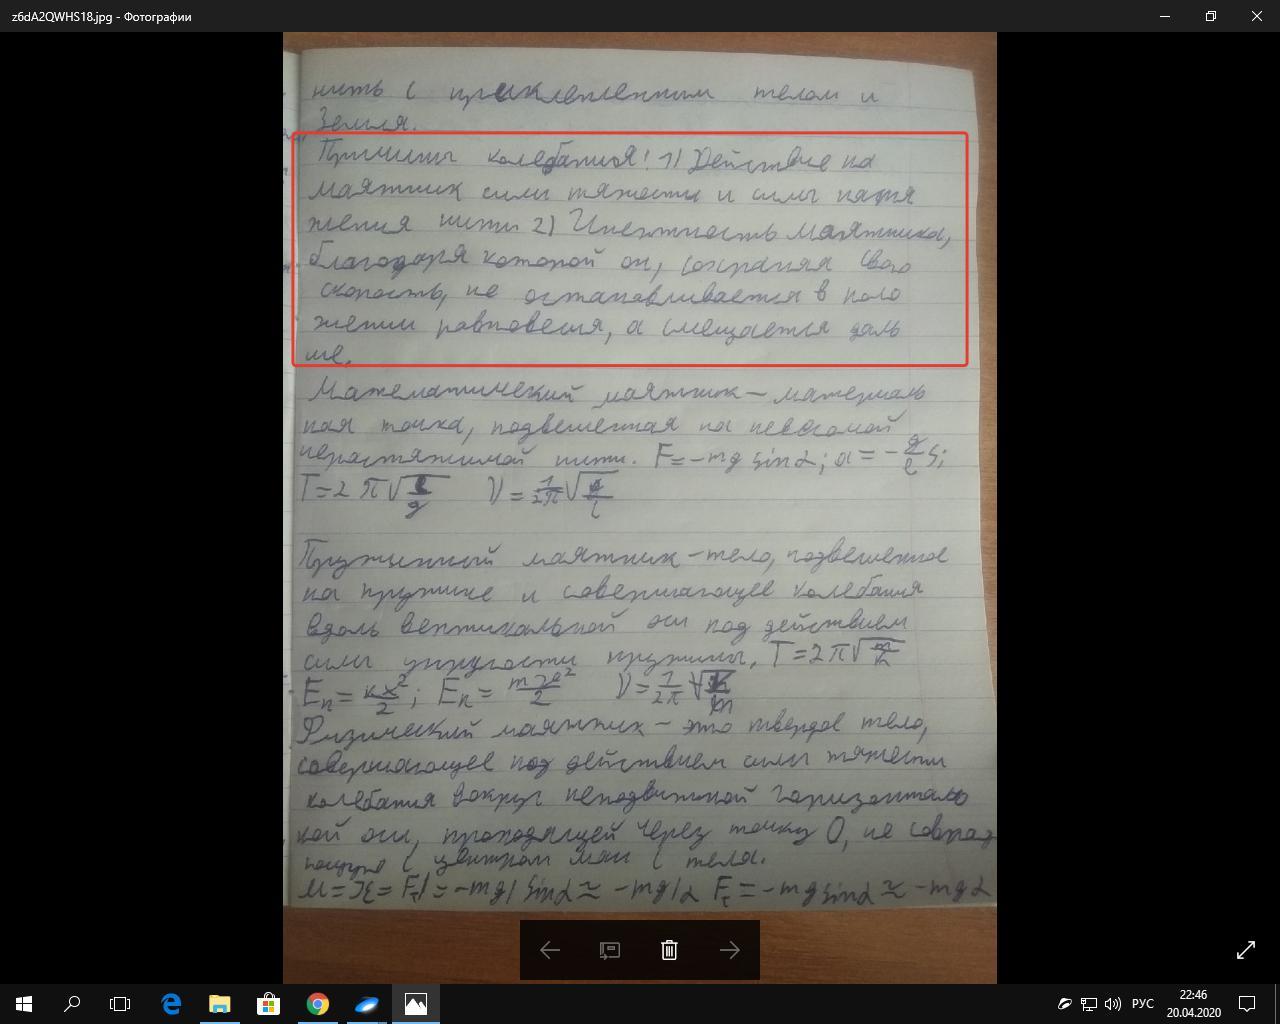 z6dA2QWHS18.jpg - Фотографии
нить с прикрепленным телом и
Земля.
Причины колебания! 1) Действие на
маятник силы тяжести и силы натя
жения нити 2) Инертность маятника,
благодаря которой он, сохраняя свою
скорость, не останавливается в поло
жении равновесия, а смещается даль
ше.
Математический маятник – материаль
ная точка, подвешенная на невесомой
нерастяжимой нити. F=-mg sinα; a=-g/l S;
T=2π√l/g ν=1/2π√g/l
Пружинный маятник – тело, подвешенное
на пружине и совершающее колебания
вдоль вертикальной оси под действием
силы упругости пружины. T=2π√m/k
Eп=kx²/2; Eк=mv²/2 ν=1/2π√k/m
Физический маятник – это твердое тело,
совершающее под действием силы тяжести
колебания вокруг неподвижной горизонталь
ной оси, проходящей через точку О, не совпад
с центром масс тела.
F=-mg sinα≃-mgα
РУС
22:46
20.04.2020